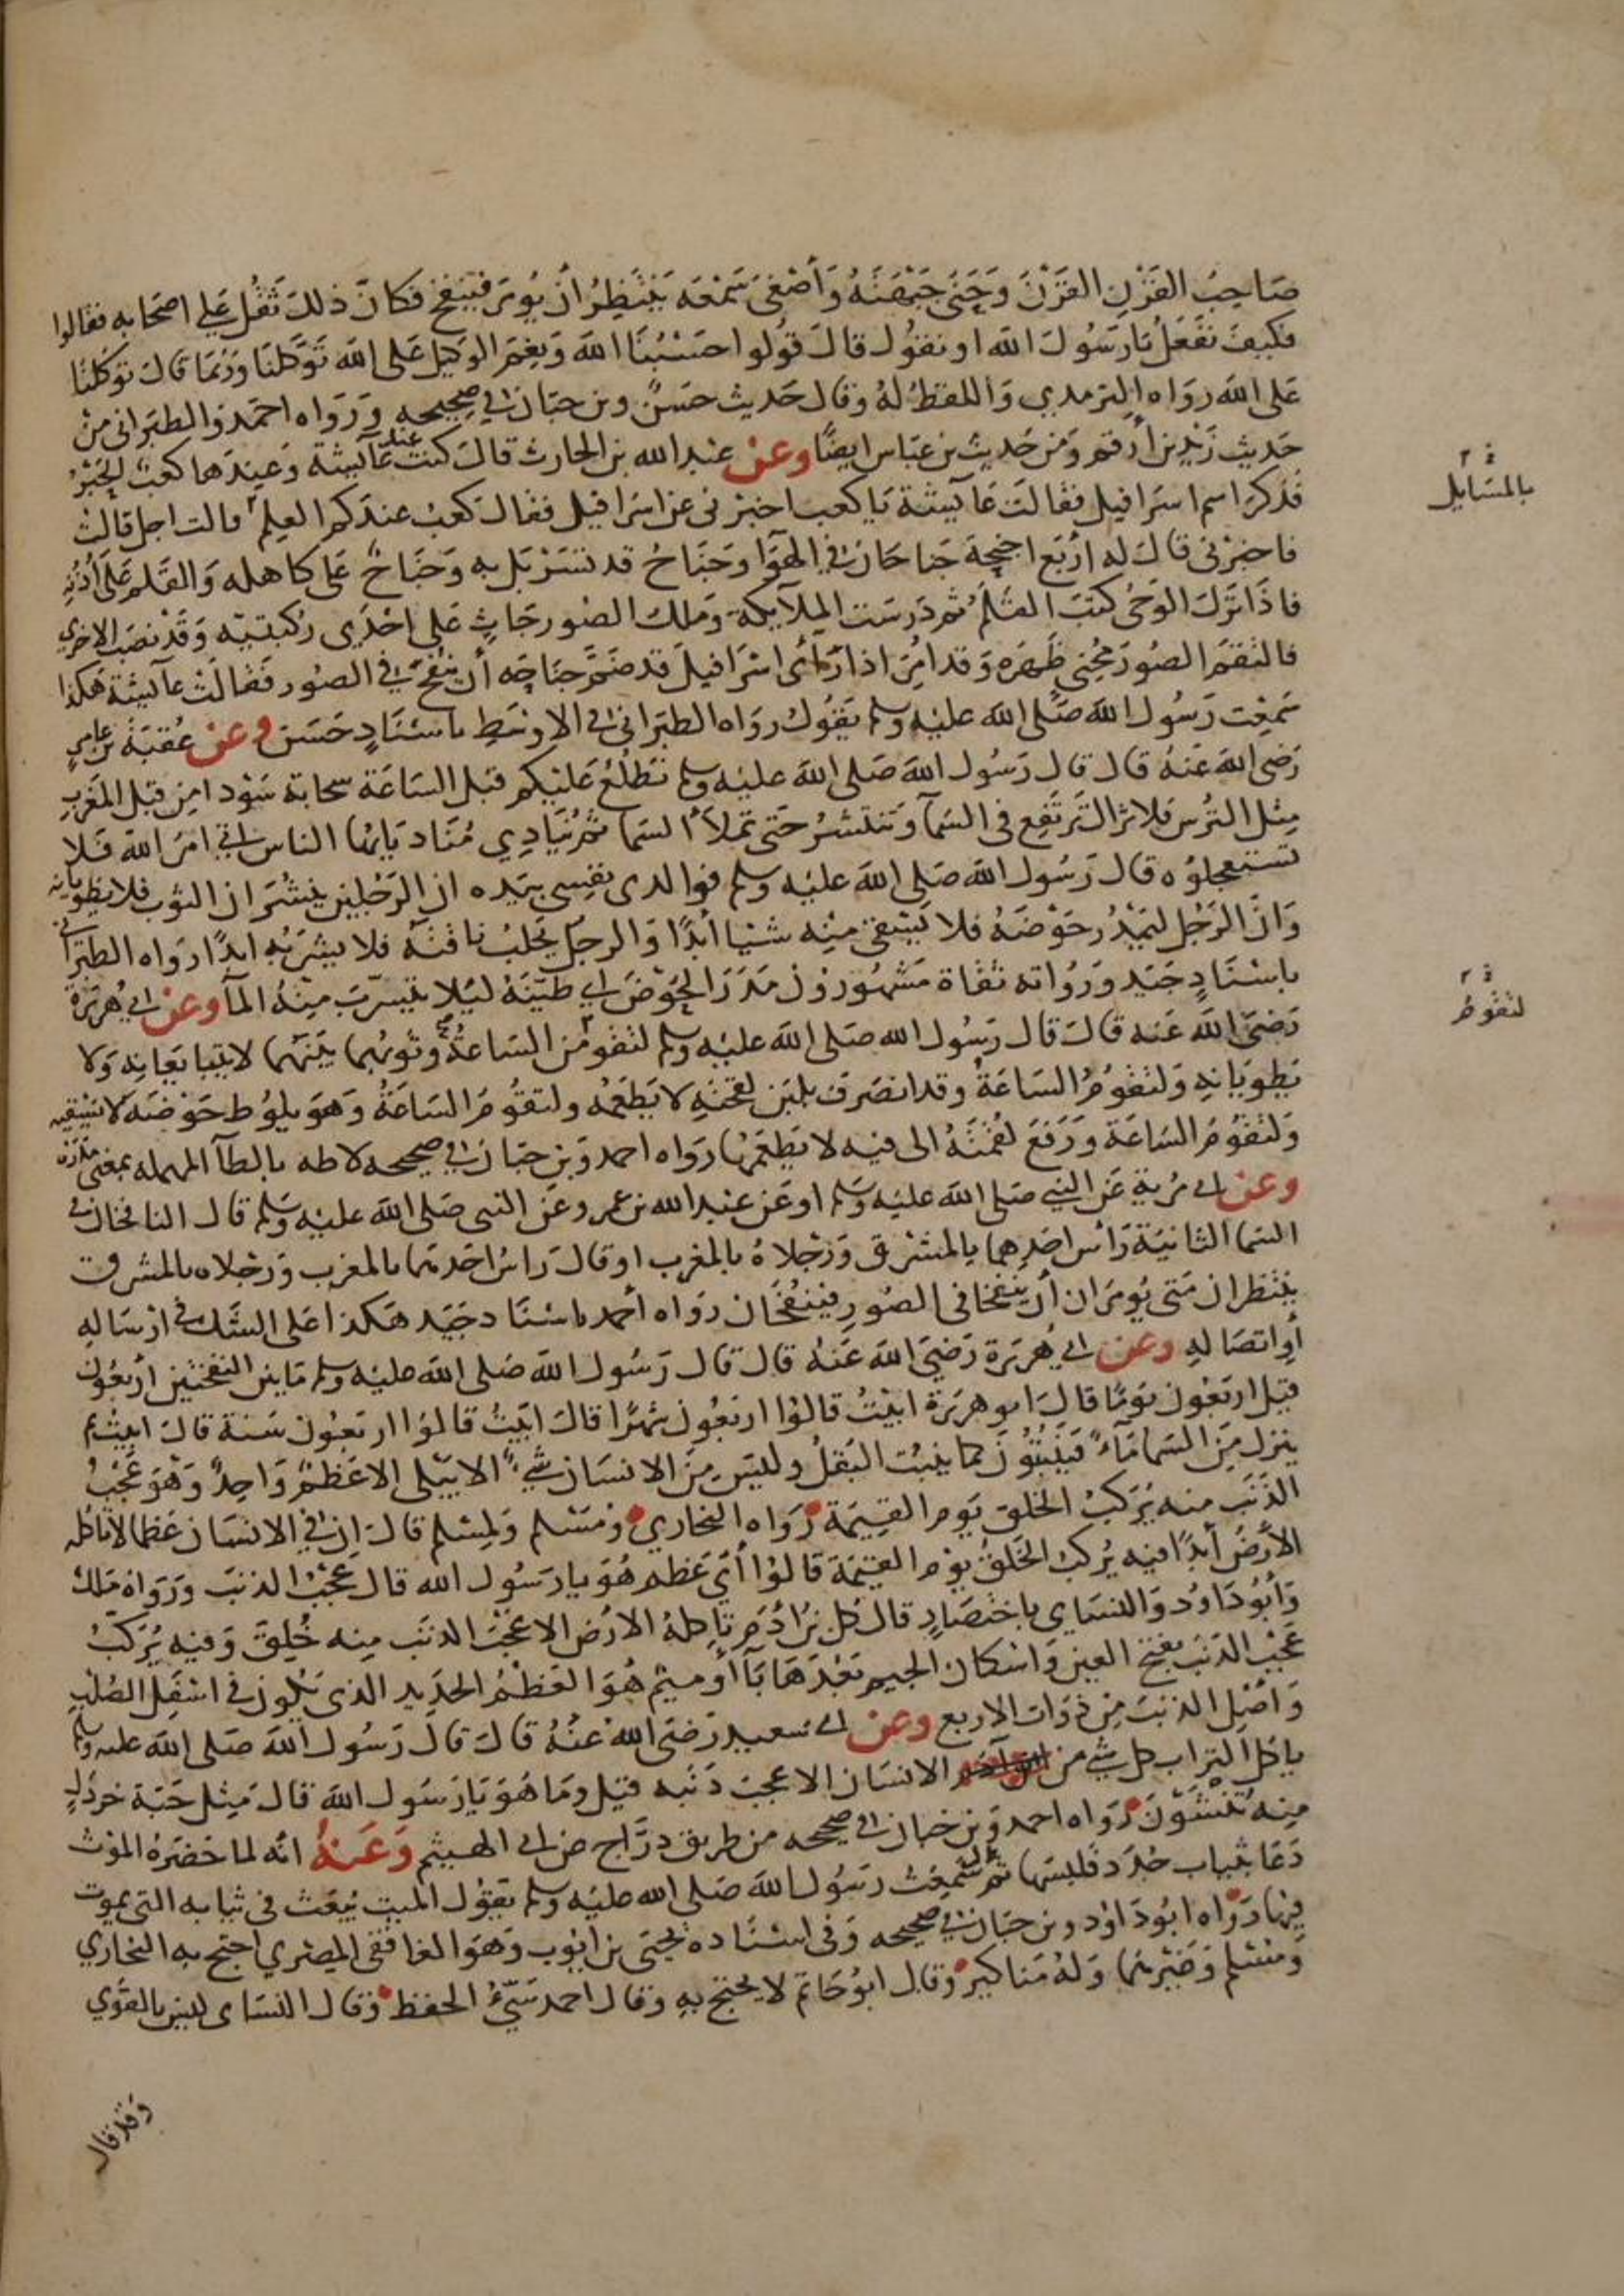 صَاحِبُ القَرْنِ القَرْنَ وَحَنَى جَبْهَتَهُ وَأَصْغَى سَمْعَه يَنْتَظِرُ أنْ يُومَر فَيَنفخ فكانَ ذلكَ ثَقُل عَلى اصحَابه فقالوا
فكيفَ نفَعَلُ يَا رَسُولَ الله او نقوُل قالَ قوُلوا حَسْبُنَا اللهَ وَنِعْمَ الوَكيل عَلى الله تَوَكلنَا وَرُبمَا قالَ توَكلنَا
عَلى الله رَوَاه الترمدي وَاللفظ لهُ وقال حَديث حَسَنٌ وبن حبَان في صَحِيحه وَرَوَاه احمَد وَالطبَرانى من
حَديث زَيْد بن أرقم وَمن حَديث بن عَبَاس ايضًا وعن عَبْد الله بن الحارث قالَ كنت عند عَايشة وَعِندَها كعبُ الحَبْرُ
فذكرَ اسم اسرَافيل فقالت عَايشة يَا كعب اخبرْنى عَن اسرَافيل فقالَ كعَب عندَكم العِلم قالت اجل قالت
فاخبرْنى قالَ له ارْبَع اجنِحِة جَناحَان في الهوَا وجَنَاح قد تسَرْبَل به وَجَنَاحٌ عَلى كاهله وَالقَلم عَلى أُذُنِه
فاذَا نَزَلَ الوَحْىُ كتبَ القَلمُ ثم دَرسَت الملَايكة وَملك الصُور جَاثٍ عَلى احْدَى رُكبتيْه وَقَدْ نصَبَ الاخرَي
فالتَقمَ الصُورَ مَحْنى ظَهرَه وَقد امُر اذا رَأى اسْرَافيلَ قد ضَمَّ جنَاحَه أن يَنفُخ في الصُور فقالَتْ عَايشة هَكذا
سَمِعْت رَسُول الله صَلى الله عليْه وسلم يَقوُل رواه الطبَرانى فى الاوسَطِ باسْنَادٍ حَسَن وعن عُقبَة بن عامرٍ
رَضى الله عَنهُ قال قال رَسُول الله صَلى الله عليْه وسلم تطلُعُ عَليْكم قبْل السَاعَة سحابَة سَوْدا من قبَل المغرِب
مِثل التُرْس فلا تزال تَرْتفِع فى السَمَآ وَتنتشرُ حَتى تمْلأ السَما ثم يُنَادِي مُنَاد يَا ايُّها الناس اتى امرَ الله فلا
تسْتعجلوُه قال رَسُول الله صَلى الله عليه وسلم فوالدى نفسِى بيَده ان الرَجُلين ينشُرَان الثوب فلا يطويَانه
وَانَّ الرَجُل ليَمْدُر حَوْضَهُ فلا يَسْقى مِنْه شَيْا أبَدًا وَالرجل يَحلبُ نَاقتَه فلا يشرَبُه ابدًا رَواه الطبَرانى
باسْنَادٍ جَيّد وَرُواته ثقَاة مَشهُورُون مَدَرَ الحَوْض اى طيّنَهُ ليَلا يتسرّبَ مِنْهُ المآ وعن ابى هُرَيرَة
رَضىَ اللهُ عَنه قال قال رَسُول الله صَلى الله عليْه وسلم لتقوُمَنّ السَاعةُ وثوْبُهما بَيْنَهُما لا يتبَايَعَانِه وَلا
يَطوِيَانِه وَلتَقوُمُ السَاعَةُ وقد انصَرَف بلبَن لِقحَتِهِ لا يَطعَمُه ولتقُومُ السَاعَةُ وَهوَ يلُوط حَوْضَه لا يَسْقِيه
وَلتَقوُمُ السَاعَة وَرَفَعَ لقمَتَهُ الى فيه لا يَطعَمُها رَوَاه احمد وَبن حبَان في صحيحه لاطه بالطآ المهمله بمعنى مَدَرَه
وعن ابى مُرَيَة عَن النبي صَلى الله عليه وَسَلم او عَن عبْد الله بن عمر وعَن النبى صَلى الله عليْه وَسَلم قال النافخان فى
السَمَا الثانيَة رَأسُ احَدِهما بالمَشْرق وَرجْلاهُ بالمغرب اوقالَ رَاسُ احَدهما بالمغرب وَرجلاه بالمشرق
يَنْتظران مَتى يُومَران أن يَنفخَا فى الصُور فينفُخَان رواه أحمد باسْنَاد جَيّد هَكذا عَلى الشَك في ارْسَاله
أوِ اتصَالِهِ وعن ابى هُرَيرَة رَضىَ الله عَنهُ قال قال رَسُول الله صَلى الله عليْه وسلم مَا بَين النفختيْن أربَعُون
قيل ارْبَعُون يَومًا قالَ ابو هرَيرَة ابيْتُ قالوُا اربَعُون شهرًا قالَ ابَيْتُ قالوُا اربَعُون سَنة قالَ ابيْت ثم
ينزل مِنَ السَما مَآءٌ فيَنبُتُونَ كما ينبُت البَقلُ وليسَ مِنَ الانسَان شيءٌ الا يَبْلى الا عَظمٌ وَاحِدٌ وَهوَ عَجْبُ
الذَنَب منه يُرَكبُ الخلقُ يَوم القيمَة رَوَاه البخاري ومُسْلم وَلمسْلم قال ان في الانسَان عَظما لا تاكله
الارْضُ أبَدًا فيه يُركبُ الخَلقُ يوْم القيمَة قالوُا أيَّ عَظم هُوَ يا رَسُول الله قال عَجْبُ الذنَب وَرَوَاهُ مَلك
وَأبُو دَاوُد وَالنسَاى باختصَارٍ قالَ كل بن اَدَم تاكلهُ الارْض الا عَجْبَ الذنَب مِنه خُلِقَ وَفيه يُركبُ
عَجْب الذنَبْ بفتح العين وَاسْكان الجيم بَعْدَهَا بَآ أو ميْم هُوَ العَظمُ الحَدِيد الذى يَكون في اسْفَل الصُلْبِ
وَأصْلِ الذنَبَ مِن ذوَات الاربع وعن ابى سعيد رَضىَ الله عَنْهُ قالَ قال رَسُول الله صَلى الله عليه وسلم
يأكل التراب كل شي من الانسَان الا عجبَ ذَنَبه قيل وَما هُوَ يَا رَسُول الله قالَ مِثل حَبّة خردَلٍ
مِنه تنْشَوْنَ رَوَاه احمد وَبن حبان فى صحيحه من طريق دَرَّاج عن ابى الهيثم وَعَنهُ انه لما حَضَرَهُ الموْتُ
دَعَا بثيَاب جُدَد فلبسَها ثم قال سَمِعْتُ رَسُول الله صَلى الله عليْه وسلم يقوُل الميت يُبْعَث فى ثيابه التى يموت
فيها رَوَاه ابوُ دَاوُد وبن حبَان في صحيحه وَفى اسْنَاده يحيَى بن ايوب وَهوَ الغَافقى المِصْري احتج به البخاري
وَمسْلم وَغَيْرهما وَلهُ مَناكير وقال ابوُ حَاتم لا يحتج به وقال احمد سَيّءُ الحفظ وقال النسَاى ليس بالقوَي
وقد قال
بالمسَايل
لتقوُمُ